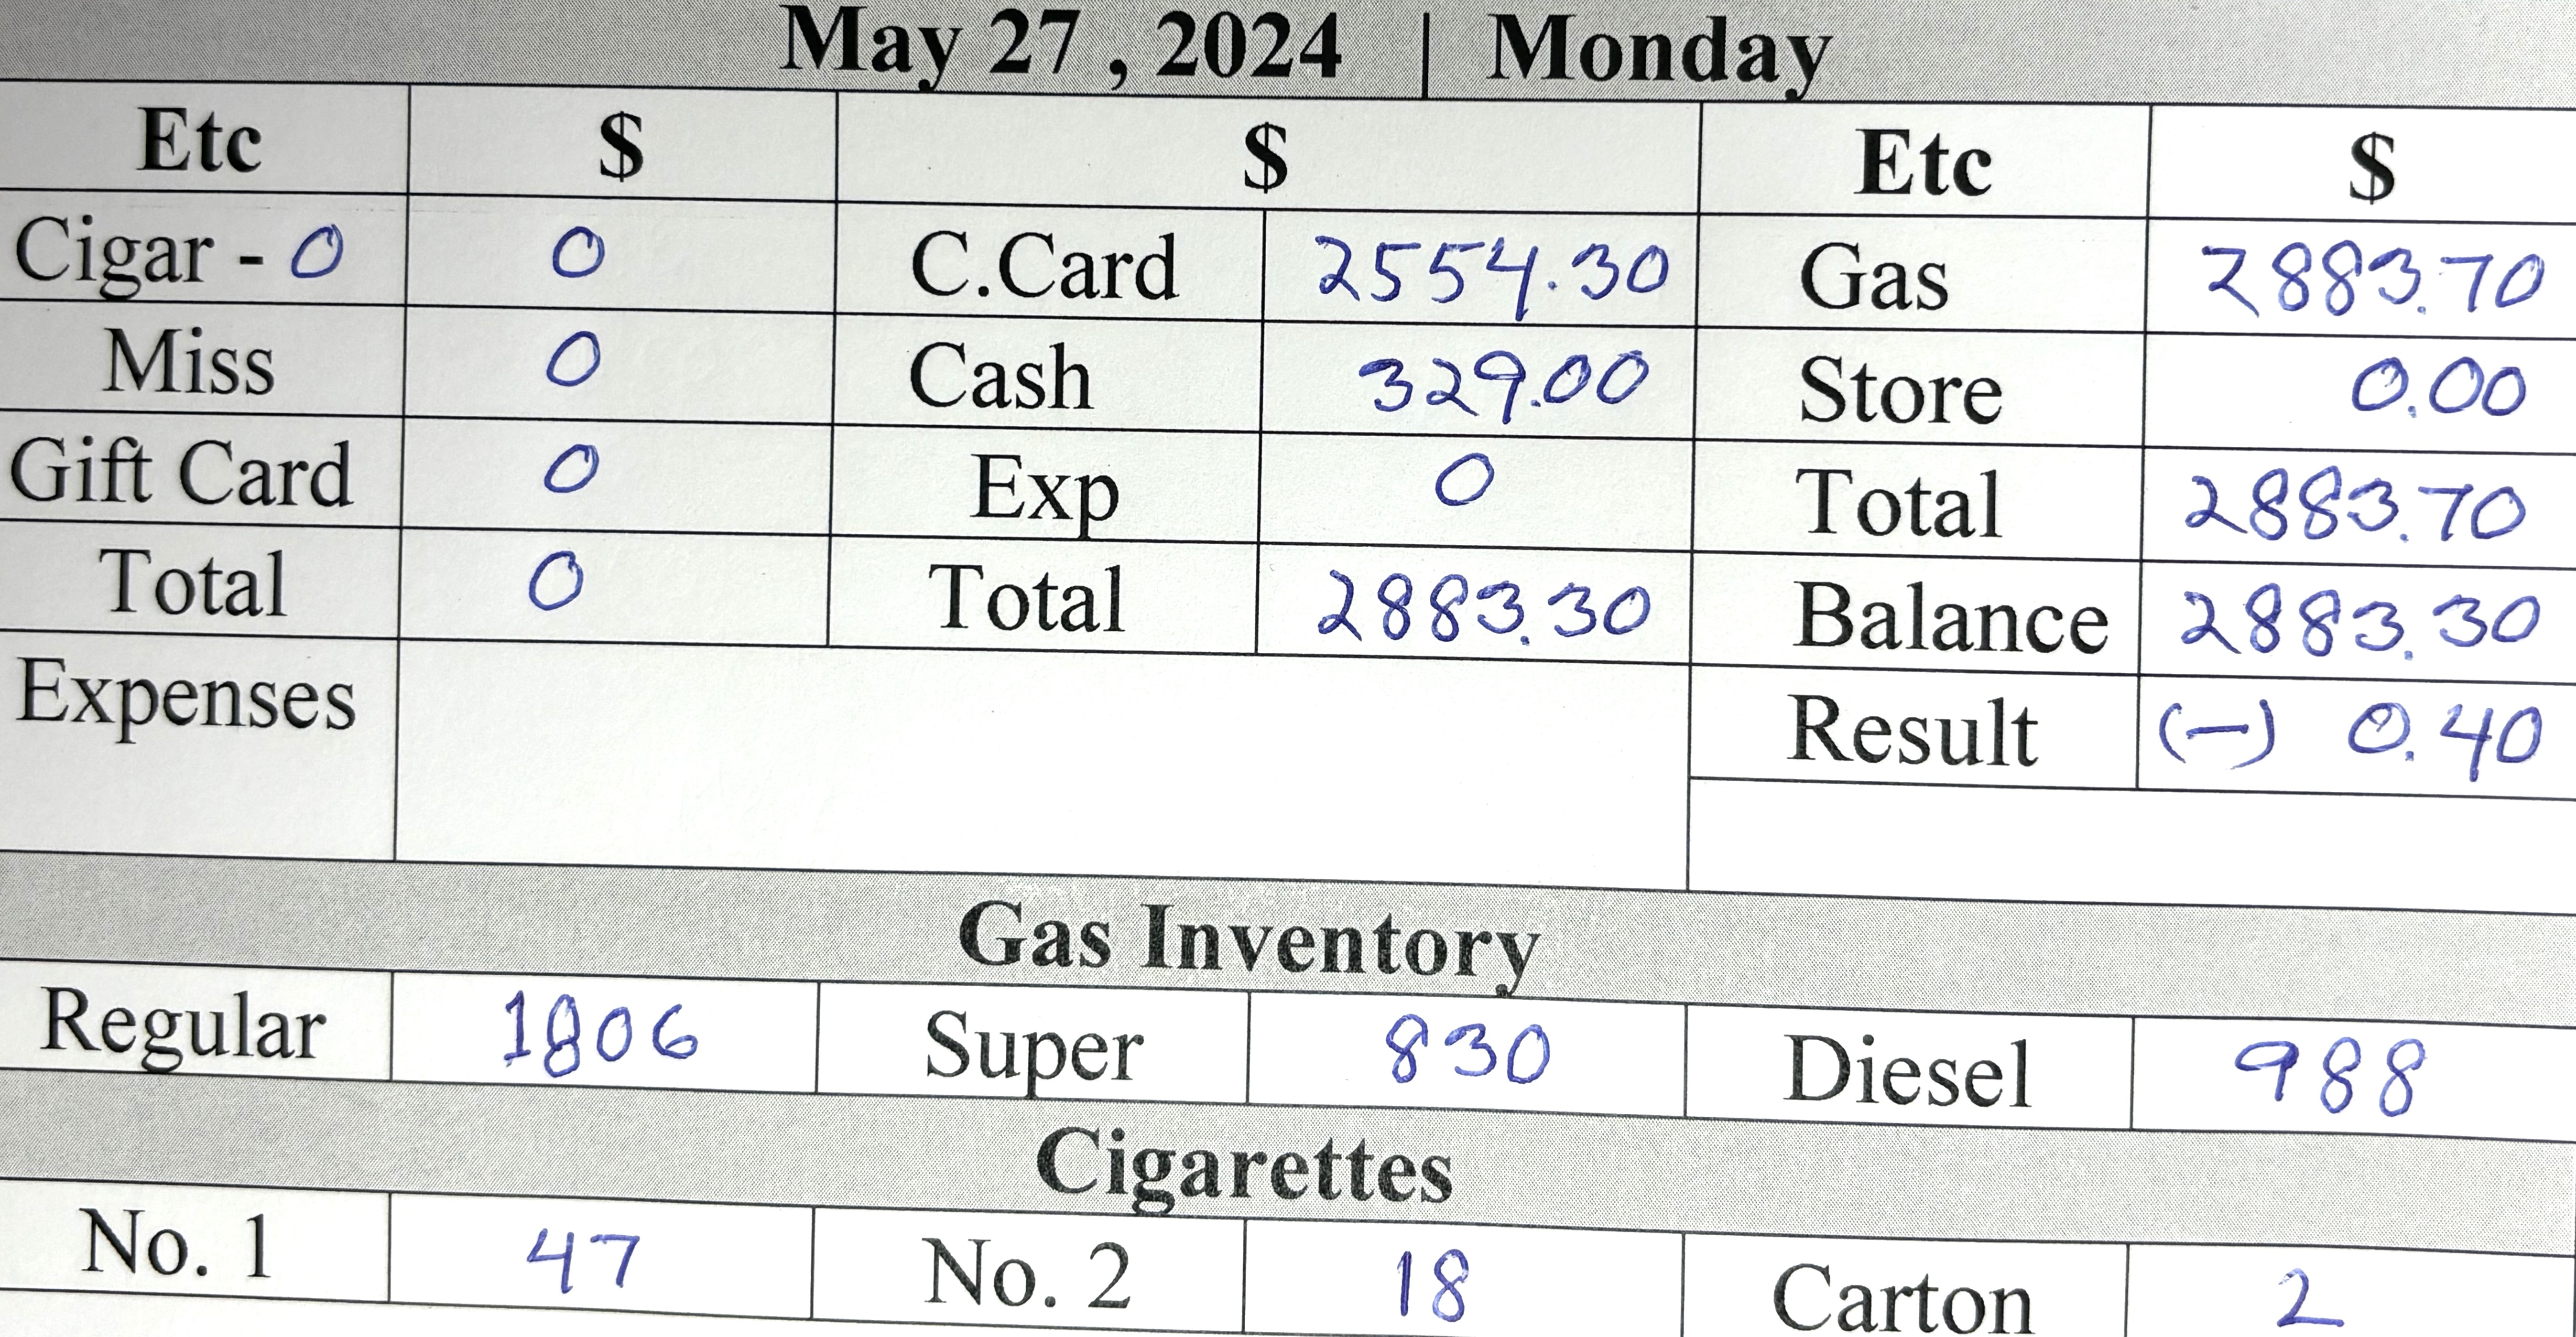 May 27 , 2024 | Monday
Etc $ $ Etc $
Cigar - 0 0 C.Card 2554.30 Gas 2883.70
Miss 0 Cash 329.00 Store 0.00
Gift Card 0 Exp 0 Total 2883.70
Total 0 Total 2883.30 Balance 2883.30
Expenses Result (-) 0.40
Gas Inventory
Regular 1806 Super 830 Diesel 988
Cigarettes
No. 1 47 No. 2 18 Carton 2